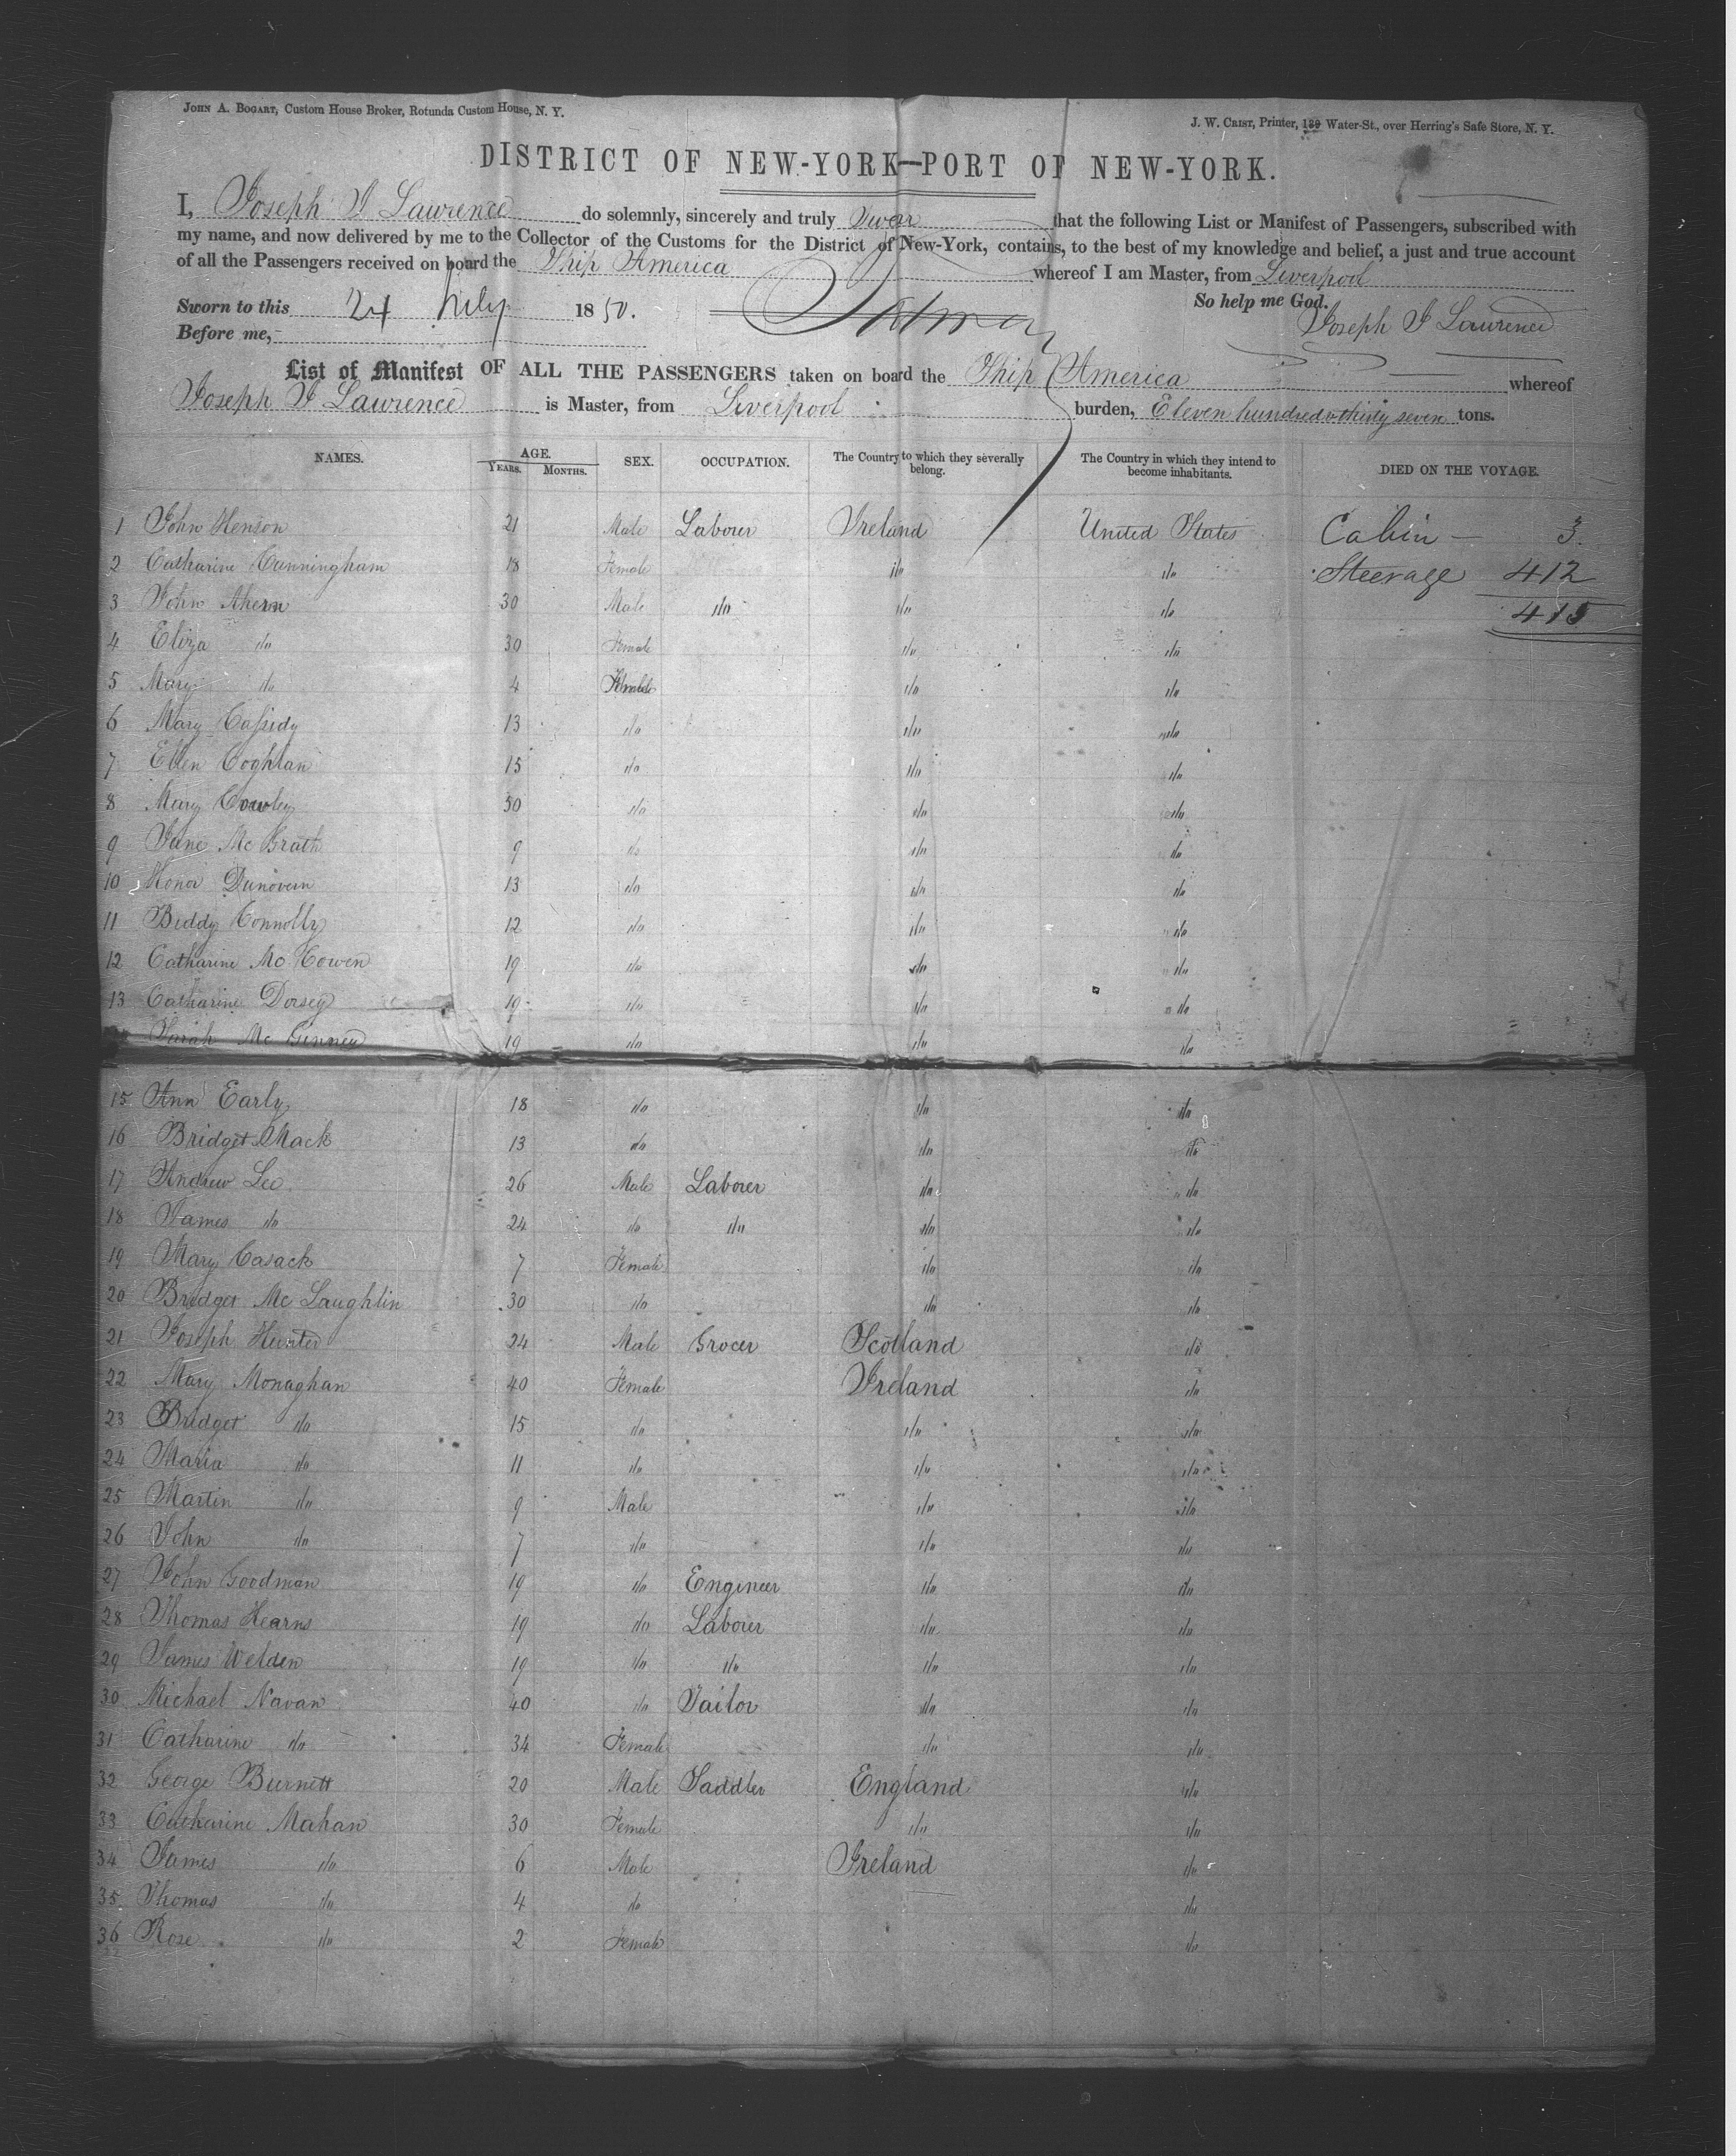 JOHN A. BOGART, Custom House Broker, Rotunda Custom House, N. Y.
J. W. CRIST, Printer, 139 Water-St., over Herring's Safe Store, N. Y.
DISTRICT OF NEW-YORK—PORT OF NEW-YORK.
I, Joseph J Lawrence do solemnly, sincerely and truly swear that the following List or Manifest of Passengers, subscribed with
my name, and now delivered by me to the Collector of the Customs for the District of New-York, contains, to the best of my knowledge and belief, a just and true account
of all the Passengers received on board the Ship America whereof I am Master, from Liverpool
Sworn to this 24 July 1850. So help me God.
Before me, Joseph J Lawrence
List of Manifest OF ALL THE PASSENGERS taken on board the Ship America whereof
Joseph J Lawrence is Master, from Liverpool burden, Eleven hundred & thirty seven tons.
NAMES. AGE. YEARS. MONTHS. SEX. OCCUPATION. The Country to which they severally belong. The Country in which they intend to become inhabitants. DIED ON THE VOYAGE.
1 John Henson 21 Male Labourer Ireland United States Cabin — 3.
2 Catharine Cunningham 18 Female do do Steerage 412
3 John Ahern 30 Male do do do 415
4 Eliza do 30 Female do do
5 Mary do 4 Female do do
6 Mary Cassidy 13 do do do
7 Ellen Coghlan 15 do do do
8 Mary Cowley 30 do do do
9 Jane Mc Grath 9 do do do
10 Honor Dunovern 13 do do do
11 Biddy Connolly 12 do do do
12 Catharine Mc Cowen 19 do do do
13 Catharine Dorsey 19 do do do
Sarah Mc Ginney 19 do do do
15 Ann Early 18 do do do
16 Bridget Mack 13 do do do
17 Andrew Lee 26 Male Laborer do do
18 James do 24 do do do do
19 Mary Casack 7 Female do do
20 Bridget Mc Laughlin 30 do do do
21 Joseph Hunter 24 Male Grocer Scotland do
22 Mary Monaghan 40 Female Ireland do
23 Bridget do 15 do do do
24 Maria do 11 do do do
25 Martin do 9 Male do do
26 John do 7 do do do
27 John Goodman 19 do Engineer do do
28 Thomas Hearns 19 do Laborer do do
29 James Welden 19 do do do do
30 Michael Navan 40 do Tailor do do
31 Catharine do 34 Female do do
32 George Burnett 20 Male Saddler England do
33 Catharine Mahan 30 Female do do
34 James do 6 Male Ireland do
35 Thomas do 4 do do
36 Rose do 2 Female do